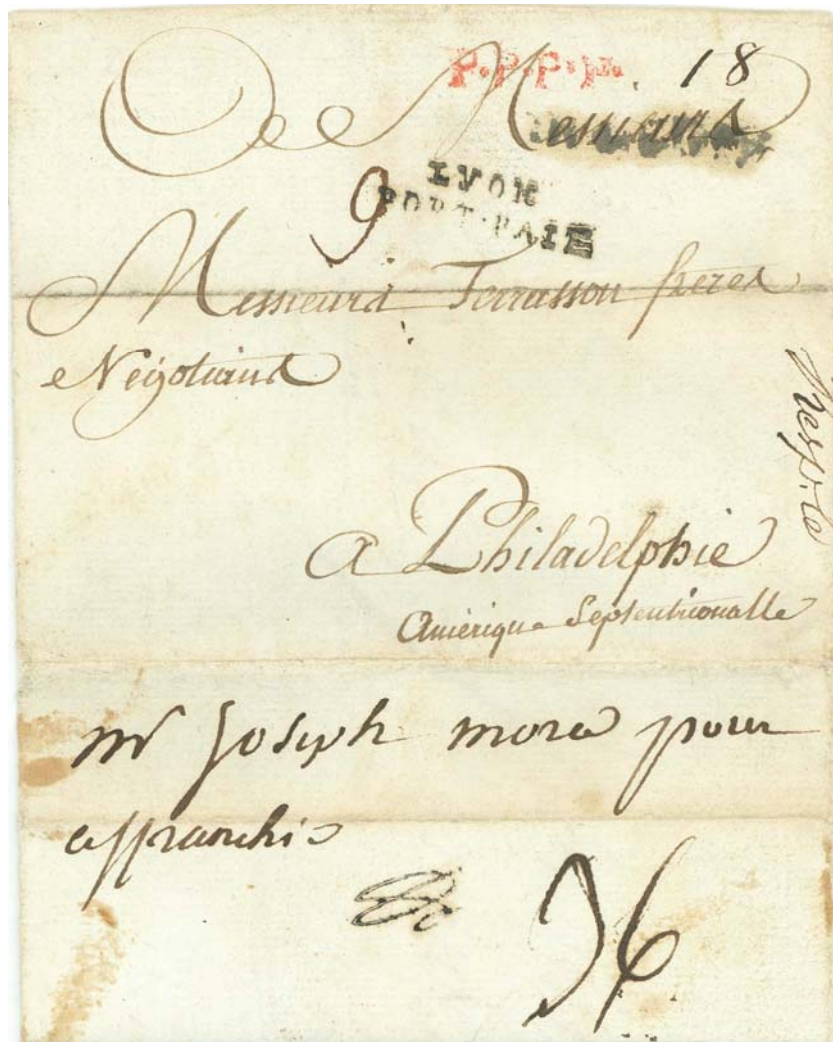 P.P.P.P. 18
Messieurs
9
LYON
PORT·PAIE
Messieurs Terrasson freres
Négotiants
a Philadelphie
Amérique Septentrionalle
mr Joseph pour
affranchis
36